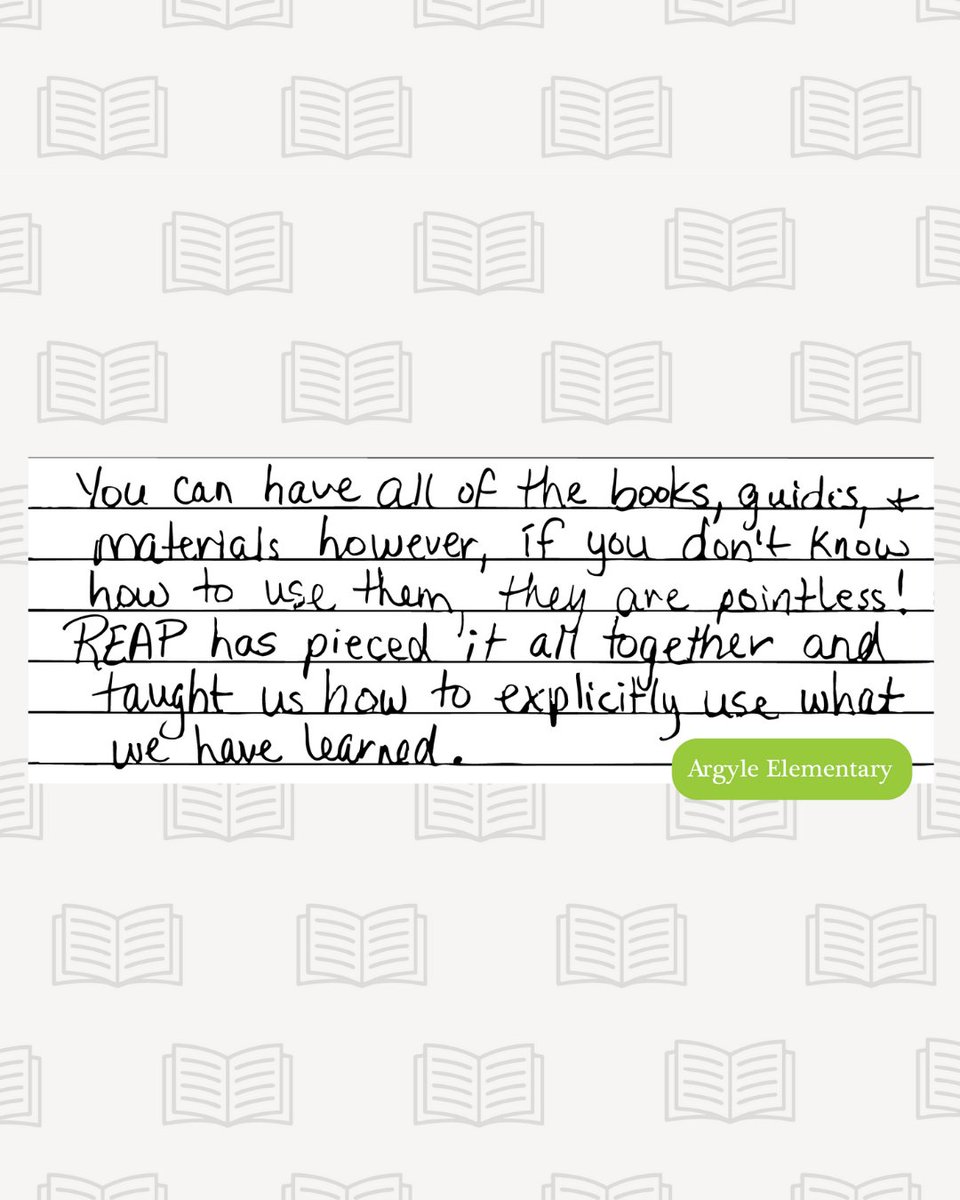 You can have all of the books, guides, +
materials however, if you don't know
how to use them, they are pointless!
REAP has pieced it all together and
taught us how to explicitly use what
we have learned.
Argyle Elementary